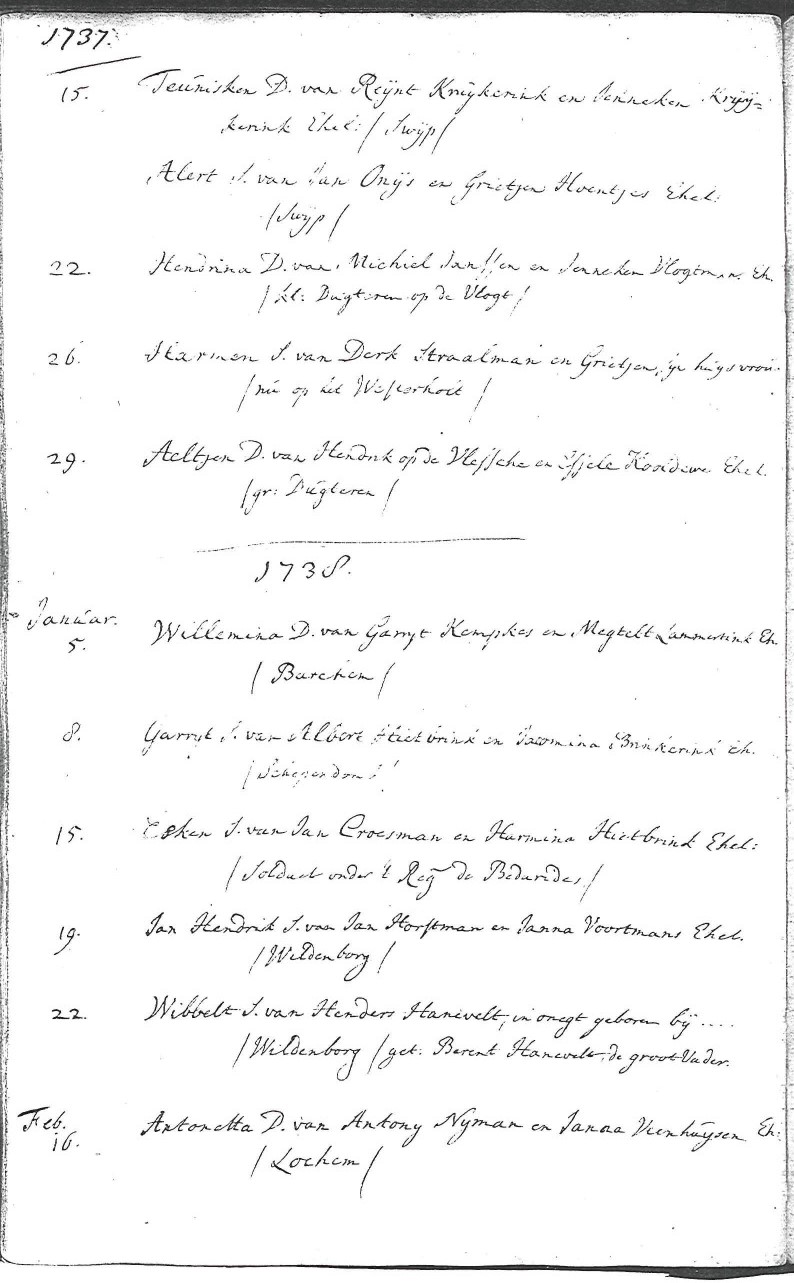 1737.
15. Teunisken D. van Reijnt Kruijkerink en Jenneken Kruij=
kerink Ehel: / Swijp /
Alert S. van Jan Onijs en Grietjen Hoentjes Ehel:
/ Swijp /
22. Hendrina D. van Michiel Janssen en Jenneken Vlogtman Eh.
/ kl: Dugteren op de Vlogt /
26. Harmen S. van Derk Straalman en Grietjen, sijn huijsvrou.
/ nu op het Westerholt /
29. Aeltjen D. van Hendrik op de Vlessche en Ehel.
/ gr: Dugteren /
1738.
Januar.
5. Willemina D. van Garryt Kempkes en Megtelt Lammertink Eh.
/ Barchem /
8. Garryt S. van Albert Hietbrink en Jacomina Brinkerink Eh.
/
15. S. van Jan Croesman en Harmina Hietbrink Ehel:
/ Soldaet onder 't Reg de Bedarides /
19. Jan Hendrik S. van Jan Horstman en Janna Voortmans Ehel.
/ Wildenborg /
22. Wibbelt S. van Henders Hanevelt, in onegt geboren bij ....
/ Wildenborg / get: Berent Hanevelt, de groot Vader.
Feb.
16. Antonetta D. van Antony Nyman en Janna Veenhuysen Eh:
/ Lochem /